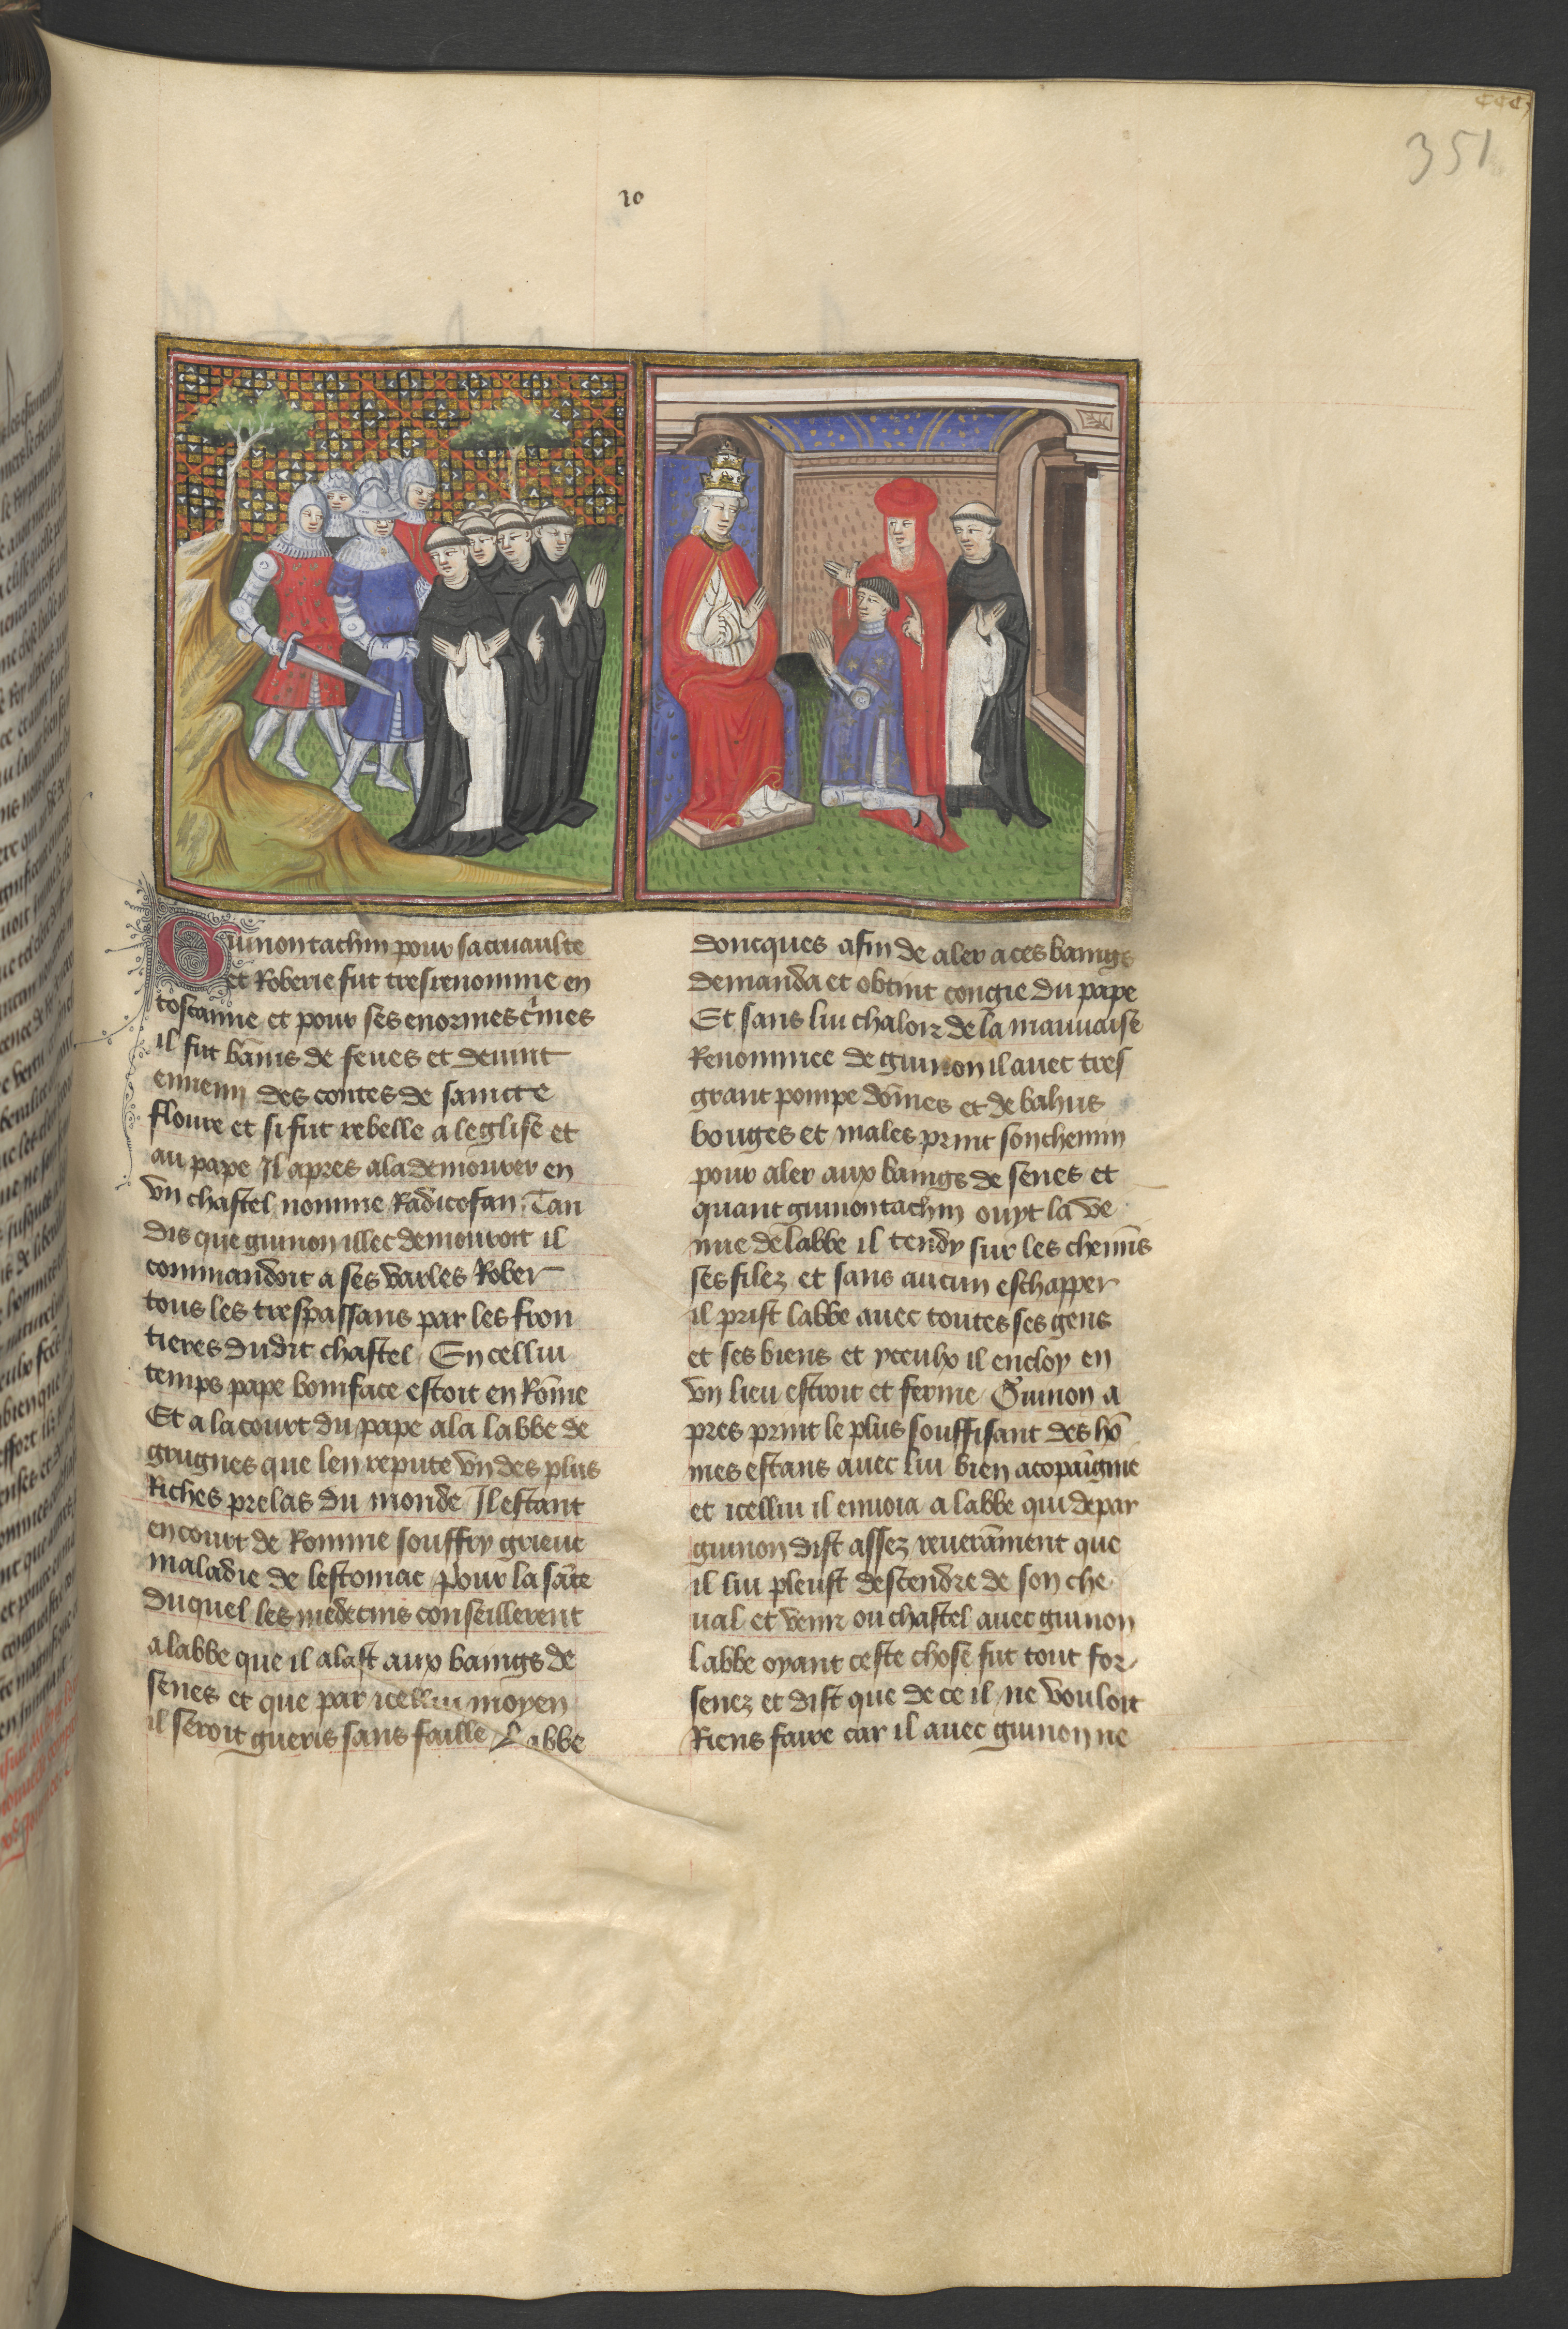 ccc
351
20
Guinontachin pour sa cruaulte
et Roberie fut tresrenomme en
toscanne et pour ses enormes c̑mes
il fut bānis de senes et deuint
ennemj des contes de saincte
floure et si fut rebelle a leglise et
au pape Il apres ala demourer en
vn chastel nomme Radicofan. Tan
dis que guinon illec demouroit il
commandoit a ses varles Rober
tous les trespassans par les fron
tieres dudit chastel En cellui
temps pape boniface estoit en Rōme
Et a la court du pape ala labbe de
grugnes que len repute vn des plus
Riches prelas du monde Il estant
en court de Romme souffry grieue
maladie de lestomac pour la sāte
duquel les medecins conseillerent
a labbe que il alast aux baings de
senes et que par icellui moyen
il seroit gueris sans faille Labbe
doncques afin de aler a ces baings
demanda et obtint congie du pape
Et sans lui chaloir de la mauuaise
Renommee de guinon il auec tres
grant pompe dōmes et de bahus
bouges et males print son chemin
pour aler aux baings de senes et
quant guinontachin ouyt la ve
nue de labbe il tendy sur les chemīs
ses filez et sans aucun eschapper
il prist labbe auec toutes ses gens
et ses biens et yceulx il encloy en
vn lieu estroit et ferme Guinon a
pres print le plus souffisant des hō
mes estans auec lui bien acopaīgnie
et icellui il enuoia a labbe qui de par
guinon dist assez reuerāment que
il lui pleust descendre de son che
ual et venir ou chastel auec guinon
labbe oyant ceste chose fut tout for
senez et dist que de ce il ne vouloit
Riens faire car il auec guinon ne